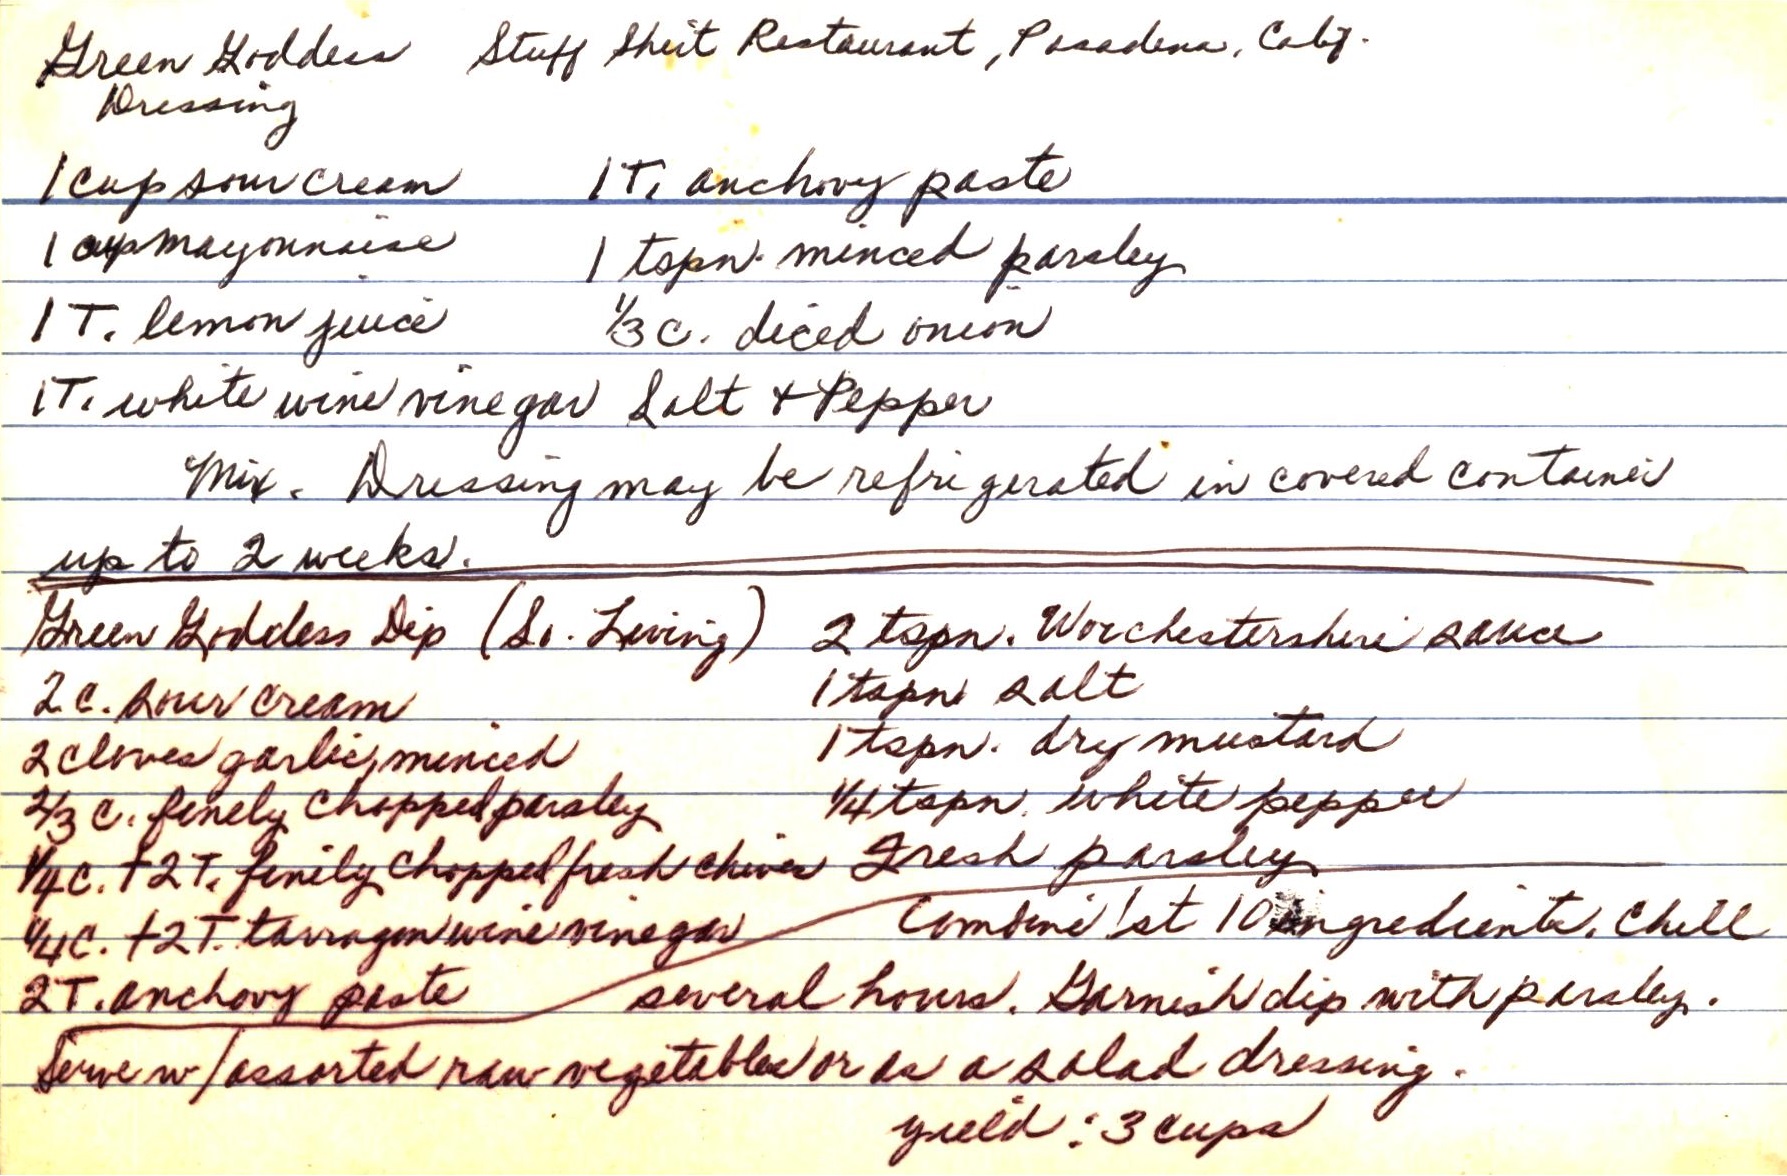 Green Goddess Stuff Shirt Restaurant, Pasadena, Calif.
Dressing
1 cup sour cream 1 T. anchovy paste
1 cup mayonnaise 1 tspn. minced parsley
1 T. lemon juice 1/3 c. diced onion
1 T. white wine vinegar Salt + Pepper
Mix. Dressing may be refrigerated in covered container
up to 2 weeks.
Green Goddess Dip (So. Living) 2 tspn. Worchestershire sauce
2 c. sour cream 1 tspn salt
2 cloves garlic, minced 1 tspn. dry mustard
2/3 c. finely chopped parsley 1/4 tspn. white pepper
1/4 c. + 2 T. finely chopped fresh chives Fresh parsley
1/4 c. + 2 T. tarragon wine vinegar Combine 1st 10 ingredients. Chill
2 T. anchovy paste several hours. Garnish dip with parsley.
Serve w/ assorted raw vegetables or as a salad dressing.
yield : 3 cups